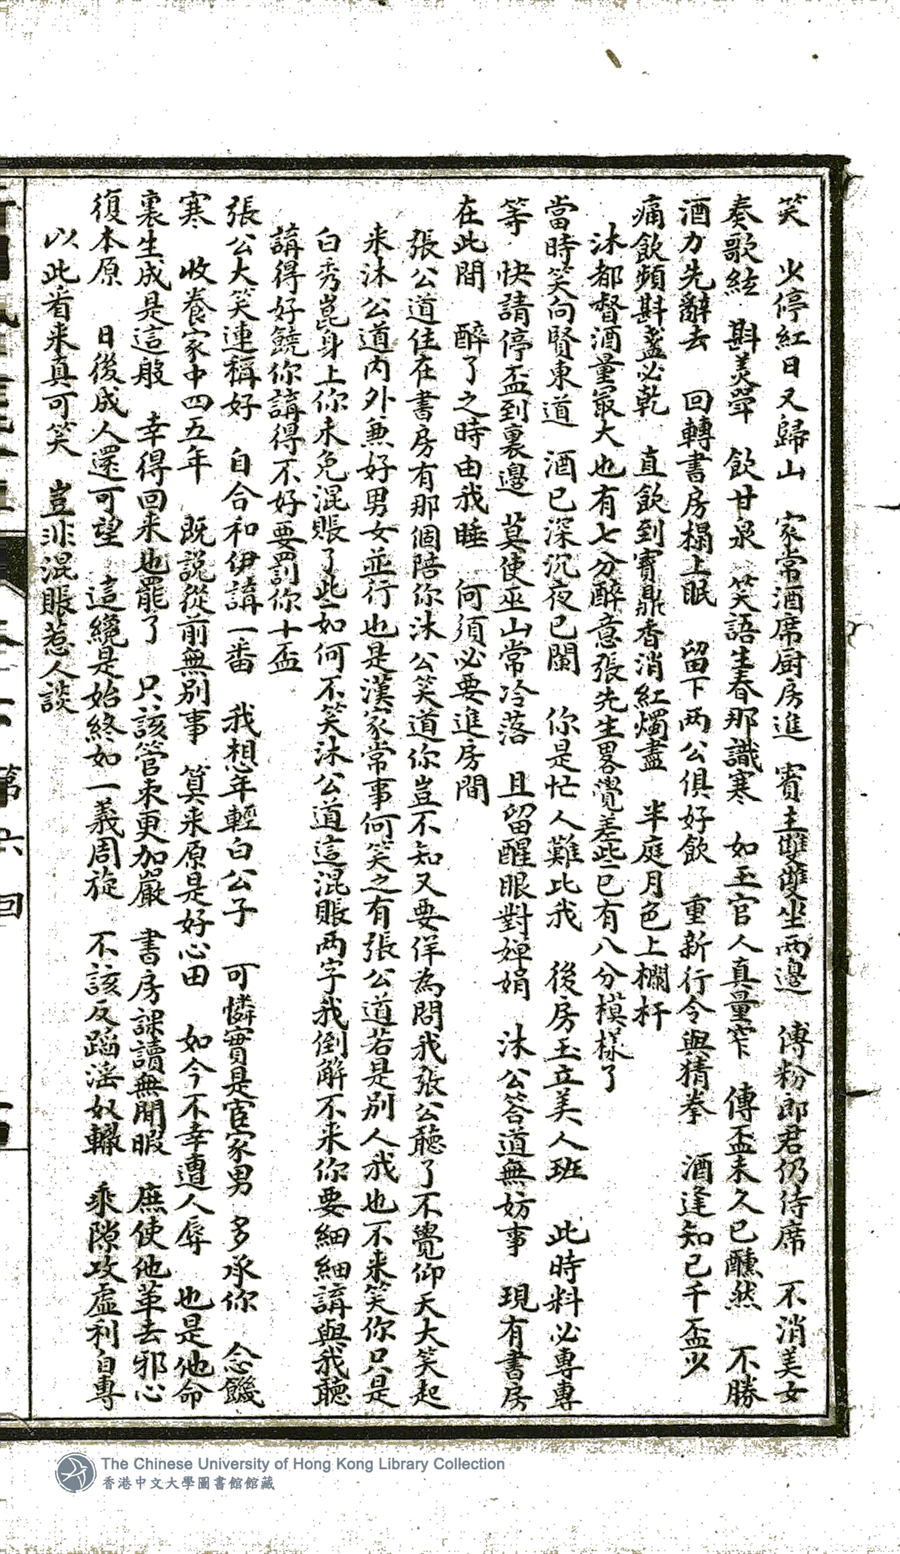 笑　少停紅日又歸山　家常酒席厨房進　賓主雙雙坐兩邊　傅粉郎君仍侍席　不消美女
奏歌絃　斟美醖　飲甘泉　笑語生春那識寒　如玉官人真量窄　傳盃未久已醺然　不勝
酒力先辭去　回轉書房榻上眠　留下两公俱好飲　重新行令與猜拳　酒逢知己千盃少
痛飲頻斟盞必乾　直飲到寶鼎香消紅燭盡　半庭月色上欄杆
沐都督酒量最大也有七分醉意張先生畧覺差些已有八分模樣了
當時笑向賢東道　酒已深沉夜已闌　你是忙人難比我　後房玉立美人班　此時料必專專
等　快請停盃到裏邊　莫使巫山常冷落　且留醒眼對嬋娟　沐公答道無妨事　現有書房
在此間　醉了之時由我睡　何須必要進房間
張公道住在書房有那個陪你沐公笑道你豈不知又要佯為問我張公聽了不覺仰天大笑起
来沐公道内外兼好男女並行也是漢家常事何笑之有張公道若是別人我也不来笑你只是
白秀崑身上你未免混賬了些如何不笑沐公道這混賬两字我倒解不来你要細細講與我聽
講得好饒你講得不好要罰你十盃
張公大笑連稱好　自合和伊講一番　我想年輕白公子　可憐實是官家男　多承你　念饑
寒　收養家中四五年　既說從前無別事　算来原是好心田　如今不幸遭人辱　也是他命
裏生成是這般　幸得回来也罷了　只該管束更加嚴　書房課讀無閒暇　庶使他革去邪心
復本原　日後成人還可望　這纔是始終如一義周旋　不該反蹈淫奴轍　乘隙攻虛利自專
以此看来真可笑　豈非混賬惹人談
第六回
The Chinese University of Hong Kong Library Collection
香港中文大學圖書館館藏